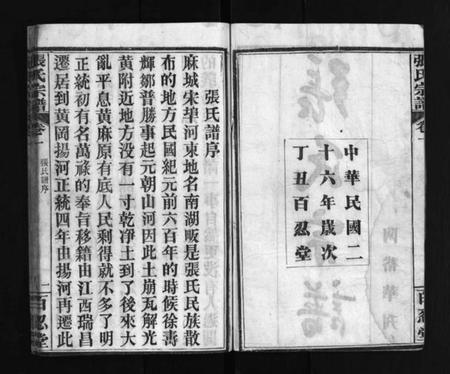 中華民國二
十六年歲次
丁丑百忍堂
張氏宗譜
卷一
百忍堂
張氏譜序
麻城宋華河東地名南湖畈是張氏民族散
布的地方民國紀元前六百年的時候徐壽
輝鄒普勝事起元朝山河因此土崩瓦解光
黃附近地方没有一寸乾淨土到了後來大
亂平息黃麻原有底人民剩得就不多了明
正統初有名萬祿的奉旨移籍由江西瑞昌
遷居到黃岡揚河正統四年由揚河再遷此
張氏宗譜
卷一
張氏譜序
一
百忍堂